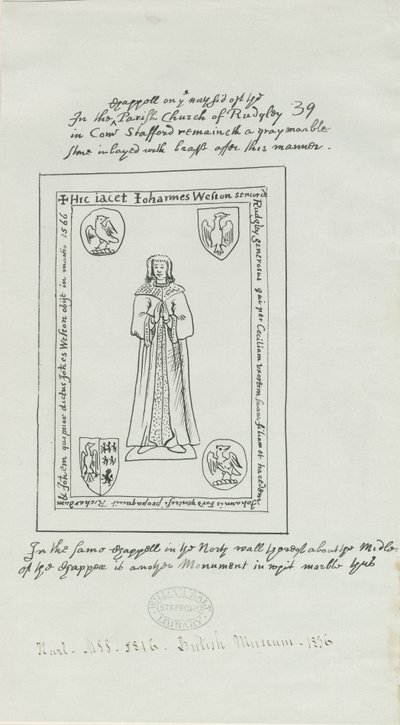 chappell on yͤ north sid of the
In the ‸ Parish Church of Rudgley 39
in Com Stafford remaineth a gray marble
stone inlayed with brasse after this manner.
✠ Hic iacet Iohannes Weston senior de
Rudgley generosus qui per Ceciliam uxorem suam filiam et haeredem
Johannis Ford generosi propagauit Richardum
& Johem qui prior dictus Johes Weston obijt in 1566
In the same chappell in the North wall thereof about the Midle
of the chappell is another Monument in whit marble thus
WILLIAM SALT
STAFFORD
LIBRARY
Harl. MSS. 5816. British Museum - 1836